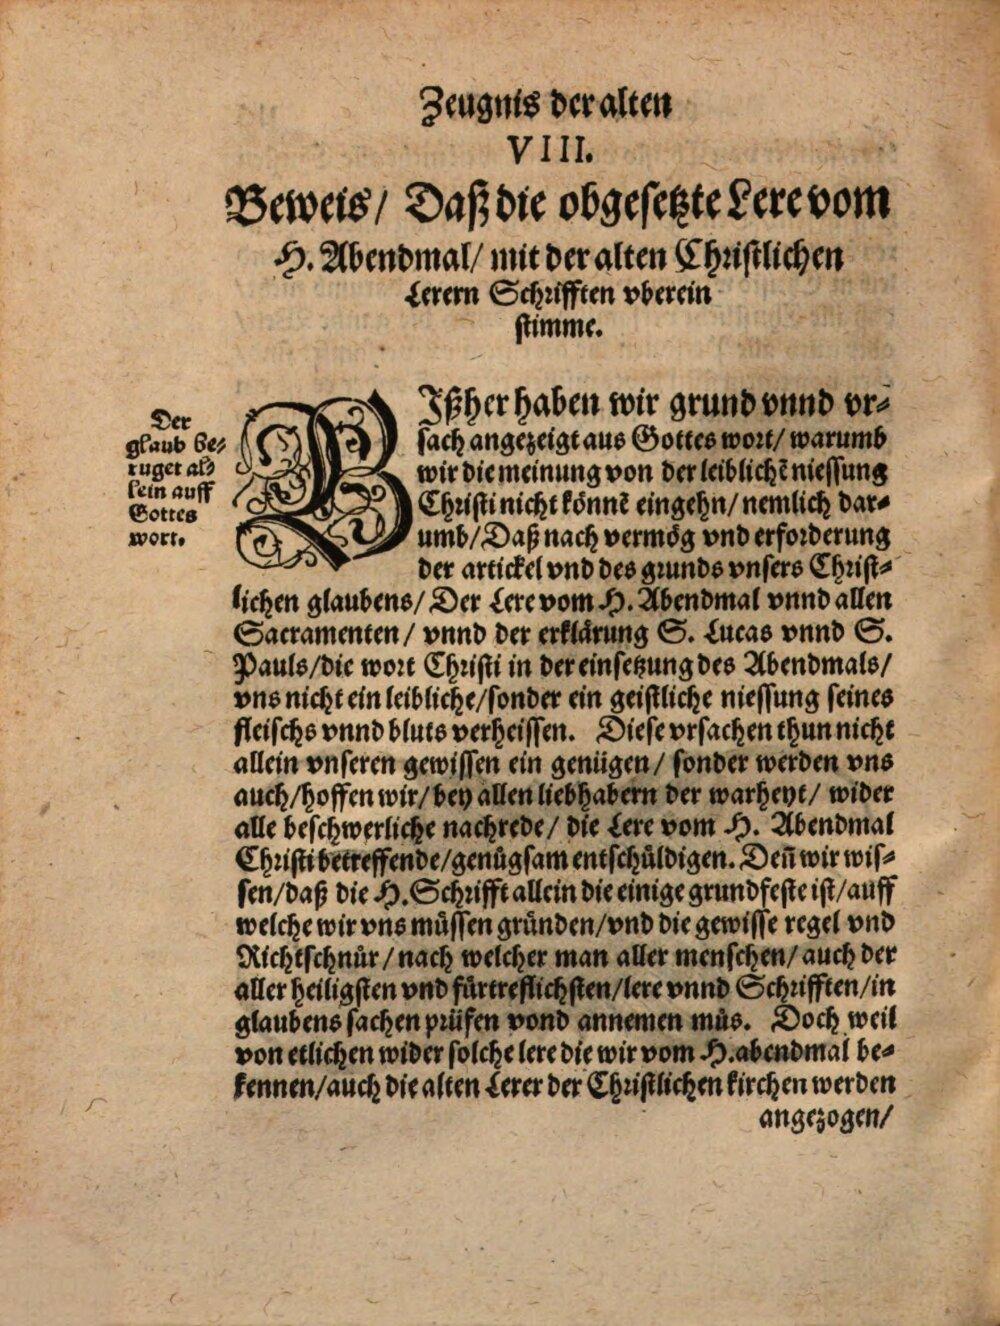 Zeugnis der alten
VIII.
Beweis/ Daß die obgesetzte Lere vom
H. Abendmal/ mit der alten Christlichen
Lerern Schrifften vberein
stimme.
Der
glaub be⸗
ruget al⸗
lein auff
Gottes
wort.
BIßher haben wir grund vnnd vr⸗
sach angezeigt aus Gottes wort/ warumb
wir die meinung von der leiblichẽ niessung
Christi nicht könnẽ eingehn/ nemlich dar⸗
umb/ Daß nach vermög vnd erforderung
der artickel vnd des grunds vnsers Christ⸗
lichen glaubens/ Der Lere vom H. Abendmal vnnd allen
Sacramenten/ vnnd der erklärung S. Lucas vnnd S.
Pauls/ die wort Christi in der einsetzung des Abendmals/
vns nicht ein leibliche/ sonder ein geistliche niessung seines
fleischs vnnd bluts verheissen. Diese vrsachen thun nicht
allein vnseren gewissen ein genügen/ sonder werden vns
auch/ hoffen wir/ bey allen liebhabern der warheyt/ wider
alle beschwerliche nachrede/ die Lere vom H. Abendmal
Christi betreffende/ genůgsam entschüldigen. Deñ wir wis⸗
sen/ daß die H. Schrifft allein die einige grundfeste ist/ auff
welche wir vns müssen gründen/ vnd die gewisse regel vnd
Richtschnůr/ nach welcher man aller menschen/ auch der
aller heiligsten vnd fürtreflichsten/ lere vnnd Schrifften/ in
glaubens sachen prüfen vond annemen můs. Doch weil
von etlichen wider solche lere die wir vom H. abendmal be⸗
kennen/ auch die alten Lerer der Christlichen kirchen werden
angezogen/